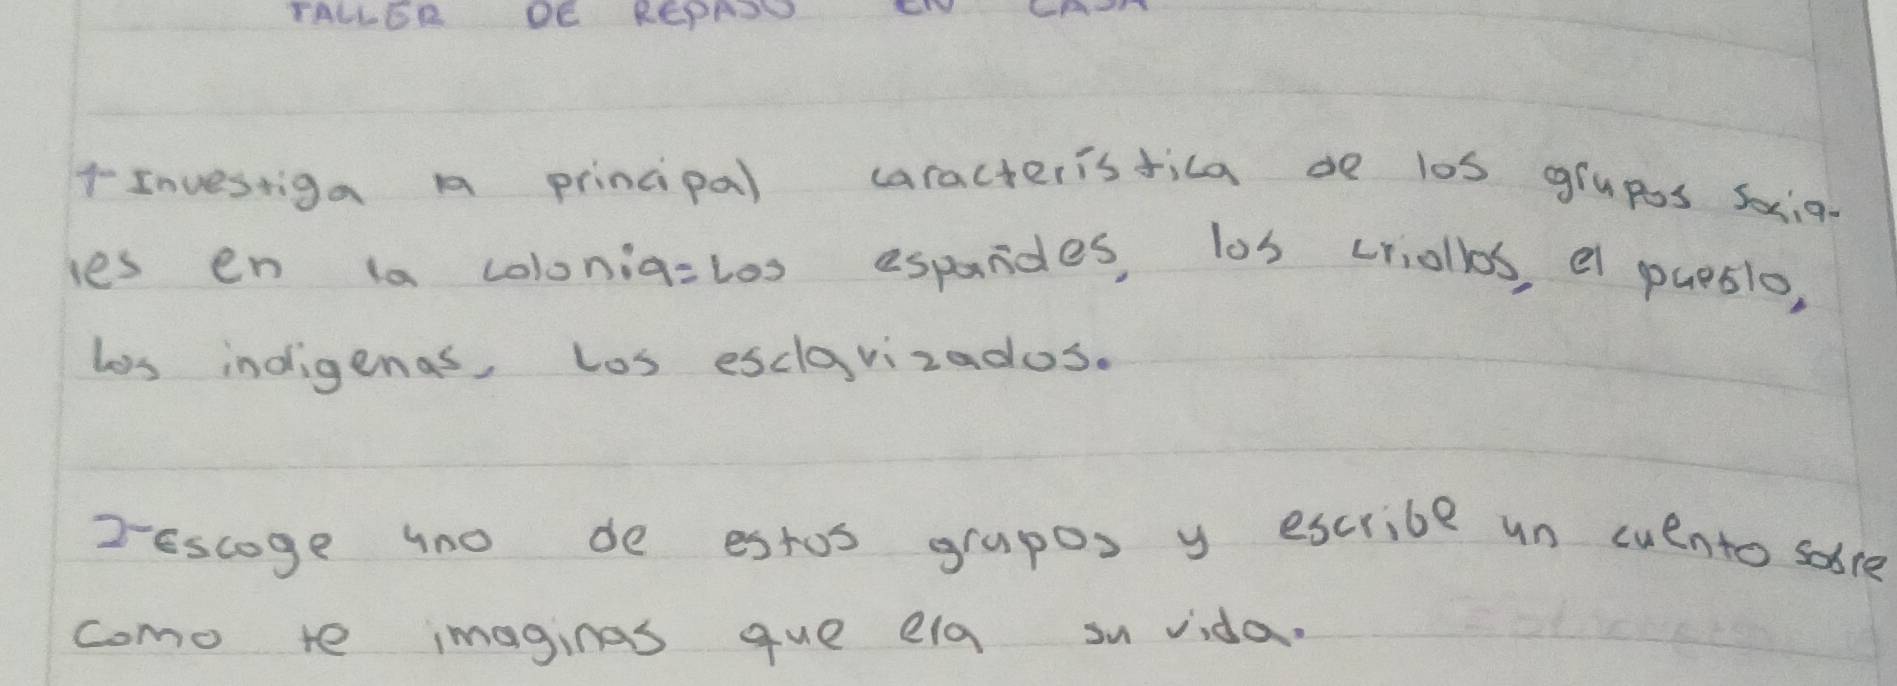 TALLER DE REPASO EN CASA
1-Investiga la principal característica de los grupos socia-
les en la colonia=Los españoles, los criollos, el pueblo,
Los indigenas, Los esclavizados.
2-Escoge uno de estos grupos y escribe un cuento sobre
como te imaginas que era su vida.